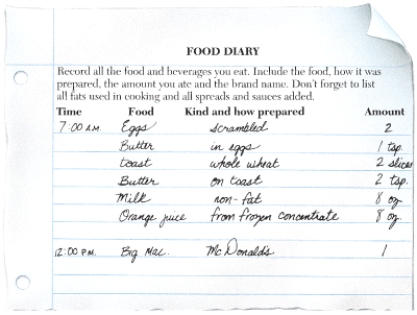 FOOD DIARY
Record all the food and beverages you eat. Include the food, how it was
prepared, the amount you ate and the brand name. Don't forget to list
all fats used in cooking and all spreads and sauces added.
Time Food Kind and how prepared Amount
7:00 A.M. Eggs scrambled 2
Butter in eggs 1 tsp.
toast whole wheat 2 slices
Butter on toast 2 tsp.
Milk non-fat 8 oz
Orange juice from frozen concentrate 8 oz
12:00 P.M. Big Mac. McDonald's 1